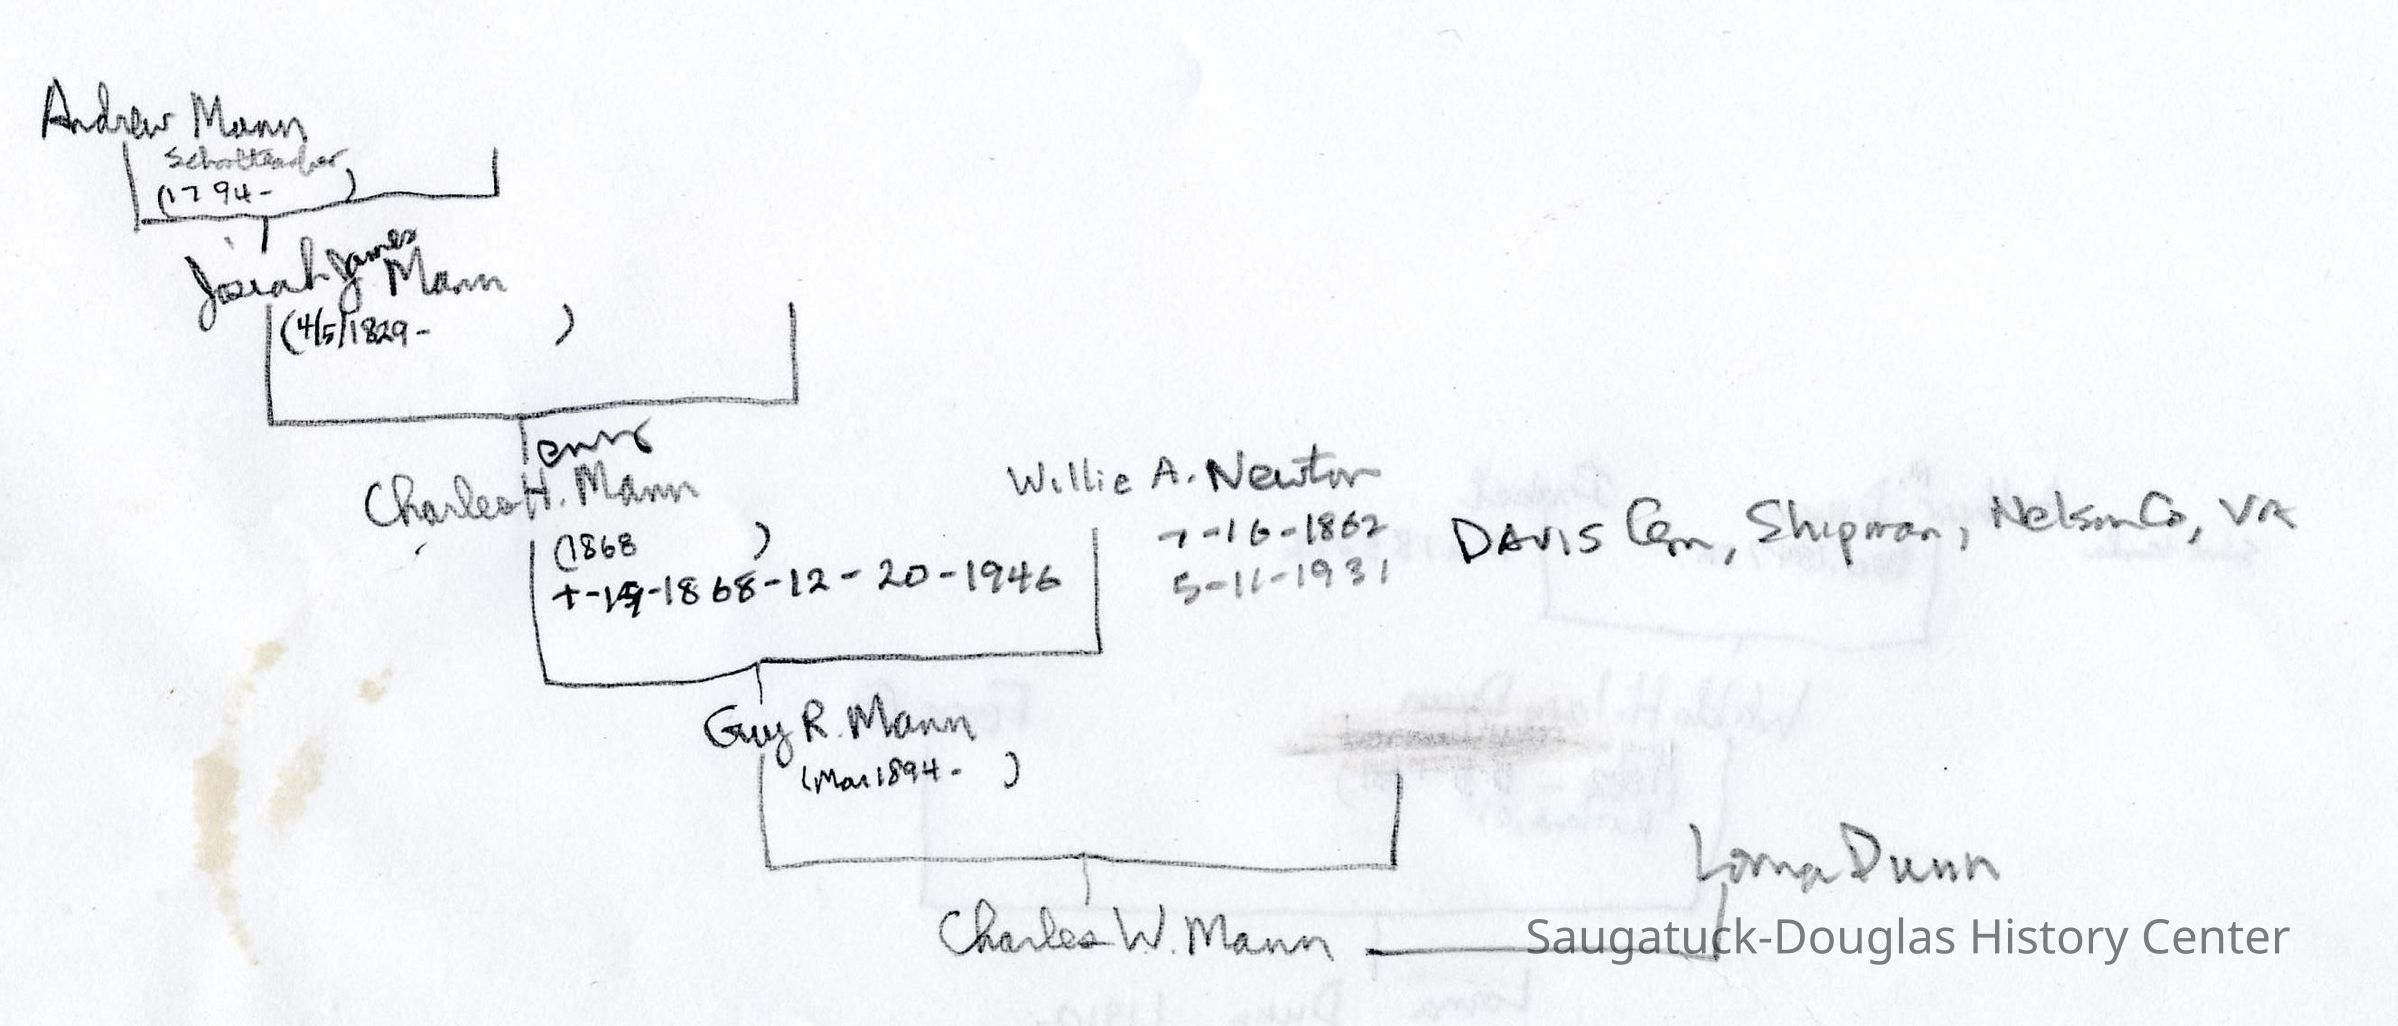 Andrew Mann
Schoolteacher
(1794- )
James
Josiah J Mann
(4/5/1829- )
Charles H. Mann
(1868 )
-1868-12-20-1946
Willie A. Newton
7-16-1862
5-11-1931
DAVIS Cem, Shipman, Nelson Co, VA
Guy R. Mann
(Mar 1894- )
Charles W. Mann
Lorna Dunn
Saugatuck-Douglas History Center